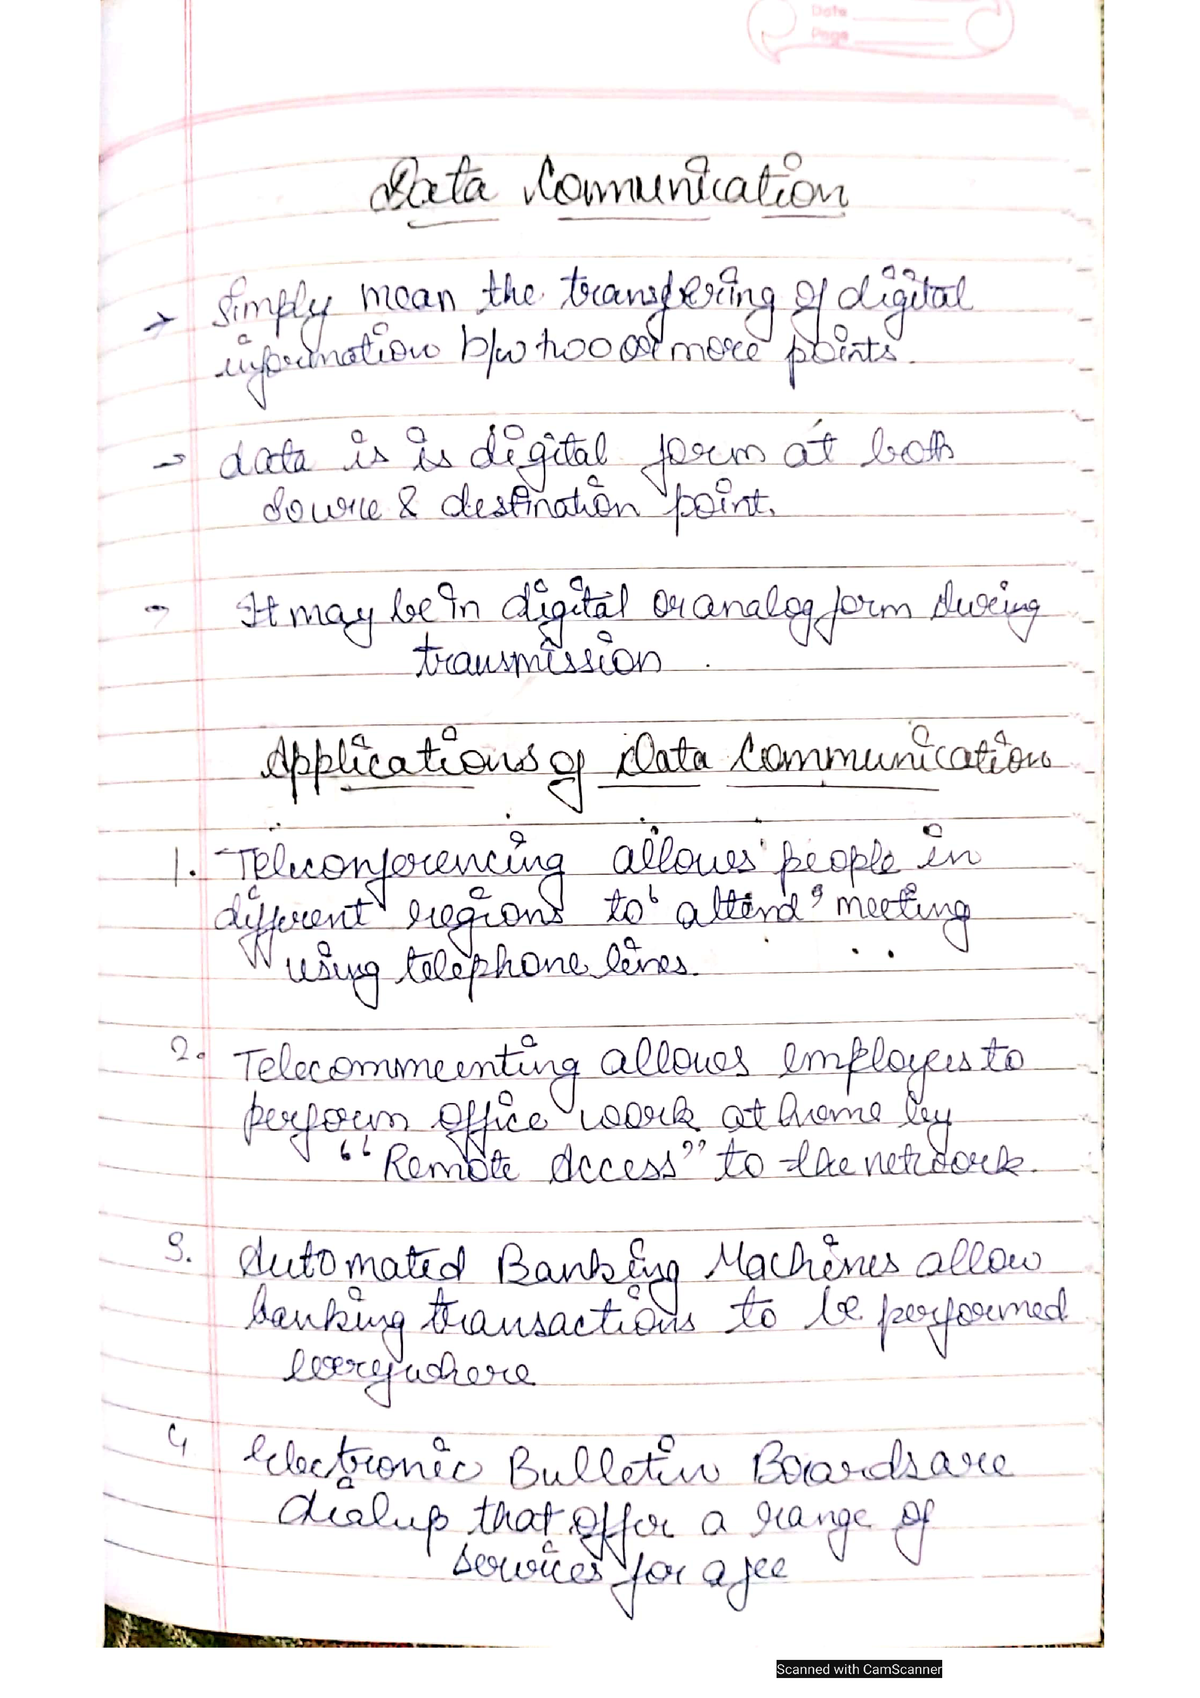 Date
Page
Data Comunication
→ Simply mean the transfering of digital
information b/w two or more points.
→ data is is digital form at both
Source & destination point.
→ It may be in digital or analog form during
transmission.
Applications of Data Communication
1. Teleconferencing allows people in
different regions to attend meeting
using telephone lines.
2. Telecommenting allows employees to
perform office work at home by
"Remote Access" to the network.
3. Automated Banking Machines allow
banking transactions to be performed
everywhere
4 Electronic Bulletin Boards are
dialup that offer a range of
services for a fee
Scanned with CamScanner